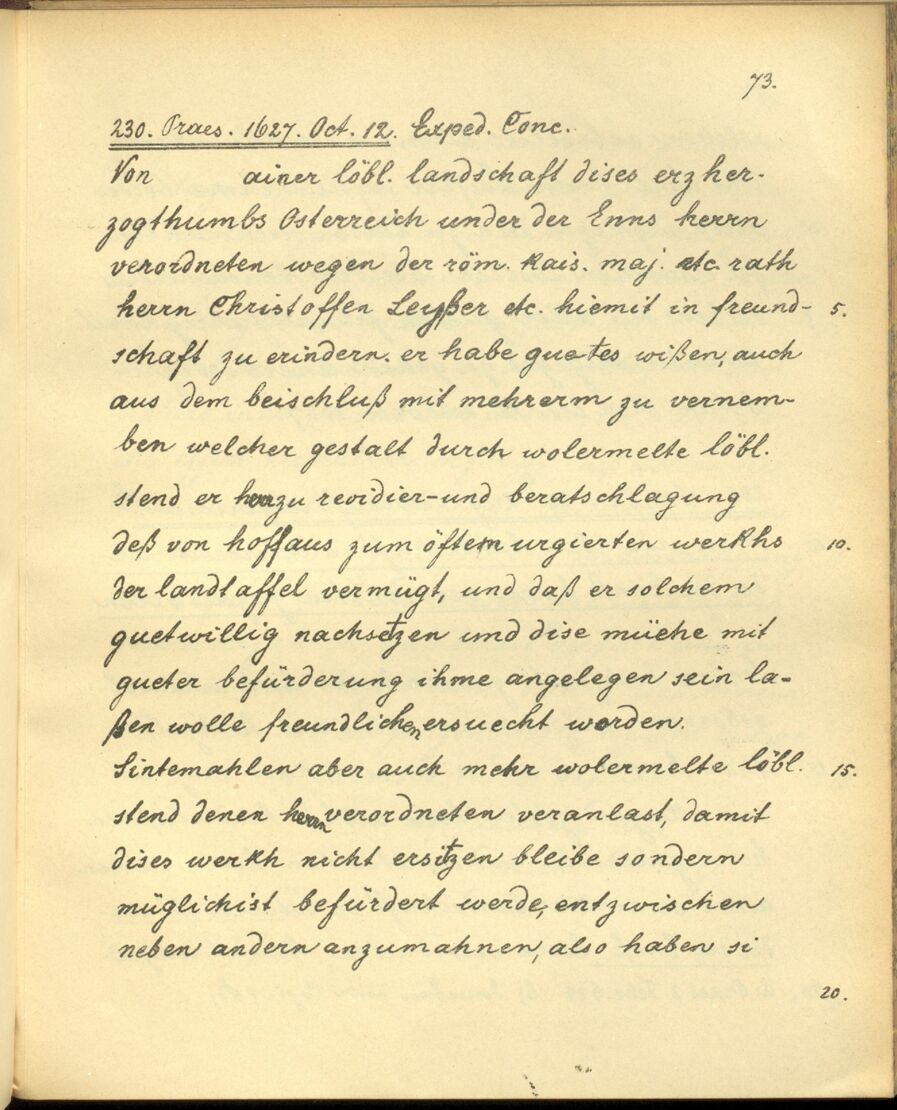 73.
230. Praes. 1627. Oct. 12. Exped. Conc.
Von ainer löbl. landschaft dises erzher-
zogthumbs Österreich under der Enns herrn
verordneten wegen der röm. kais. maj. etc. rath
herrn Christoffen Leyßer etc. hiemit in freund- 5.
schaft zu erindern. er habe guetes wißen, auch
aus dem beischluß mit mehrerm zu vernem-
ben welcher gestalt durch wolermelte löbl.
stend er herzu revidier-und beratschlagung
deß von hoff aus zum öftern urgierten werkhs 10.
der landtaffel vermügt, und daß er solchem
guetwillig nachsetzen und dise müehe mit
gueter befürderung ihme angelegen sein la-
ßen wolle freundlichen ersuecht worden.
Sintemahlen aber auch mehr wolermelte löbl. 15.
stend denen herrn verordneten veranlast, damit
dises werkh nicht ersitzen bleibe sondern
müglichist befürdert werde, entzwischen
neben andern anzumahnen, also haben si
20.